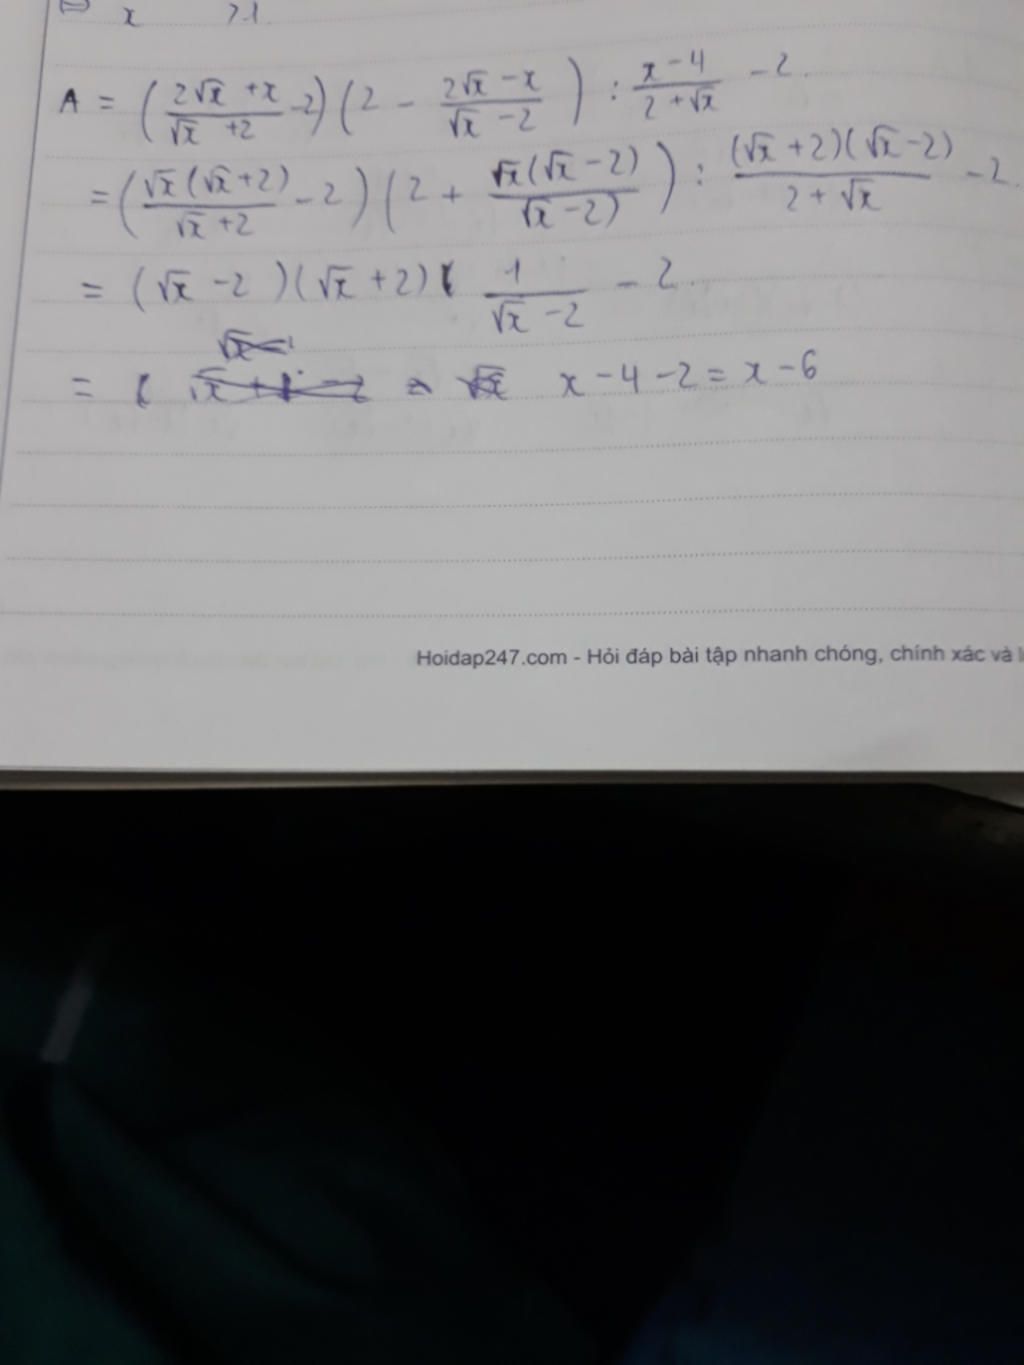 x >1
A = ( (2√x + x)/(√x + 2) - 2 ) ( 2 - (2√x - x)/(√x - 2) ) : (x - 4)/(2 + √x) - 2.
= ( √x(√x + 2)/(√x + 2) - 2 ) ( 2 + √x(√x - 2)/(√x - 2) ) : (√x + 2)(√x - 2)/(2 + √x) - 2.
= (√x - 2)(√x + 2) 1/(√x - 2) - 2.
= x - 4 - 2 = x - 6
Hoidap247.com - Hỏi đáp bài tập nhanh chóng, chính xác và